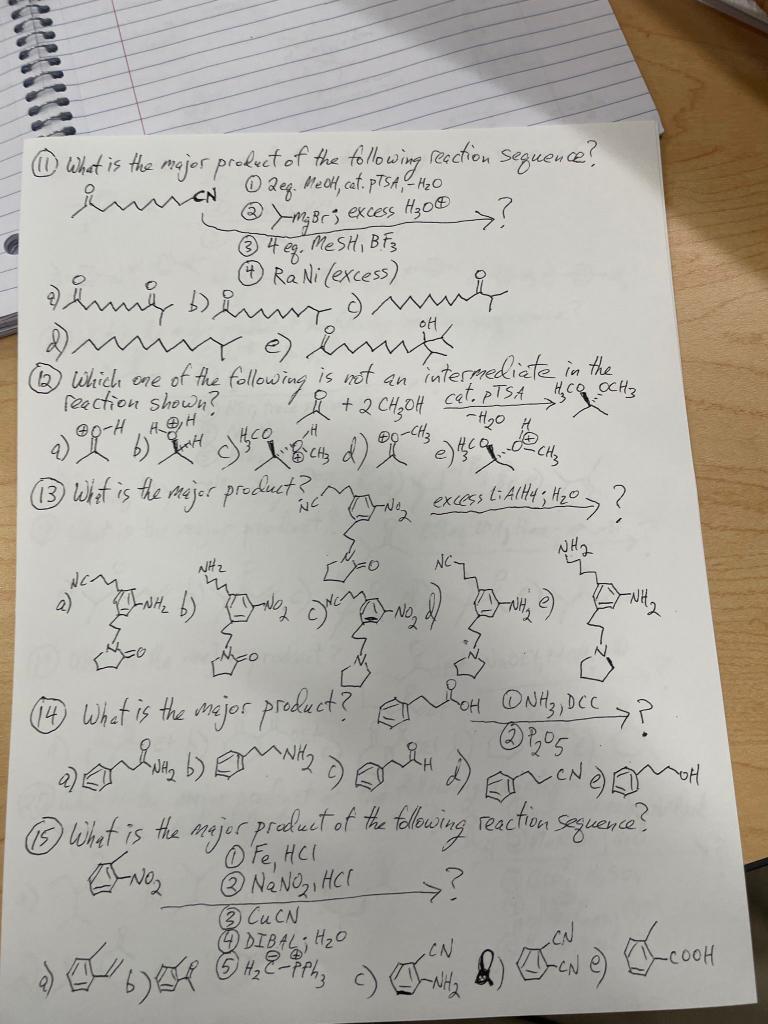 ⑪ What is the major product of the following reaction sequence?
O CN ① 2eq. MeOH, cat. pTSA, -H2O
② MgBr; excess H3O⊕ ?
③ 4 eq. MeSH, BF3
④ RaNi (excess)
a) O O b) O c) O
d) e) O OH
⑫ Which one of the following is not an intermediate in the
reaction shown? O + 2 CH3OH cat. pTSA -H2O H3CO OCH3
a) ⊕O-H b) H ⊕ H O H c) H3CO H O ⊕ CH3 d) ⊕O-CH3 e) H3CO H O ⊕ CH3
⑬ What is the major product? NC NO2 N O excess LiAlH4; H2O ?
a) NC NH2 N O b) NH2 NO2 N O c) NC NO2 N d) NC NH2 N e) NH2 NH2 N
⑭ What is the major product? O OH ① NH3, DCC ?
② P2O5
a) O NH2 b) NH2 c) O H d) CN e) OH
⑮ What is the major product of the following reaction sequence?
NO2 ① Fe, HCl
② NaNO2, HCl ?
③ CuCN
④ DIBAL; H2O
⑤ H2C⊖-P⊕Ph3
a) b) c) CN NH2 d) CN CN e) COOH